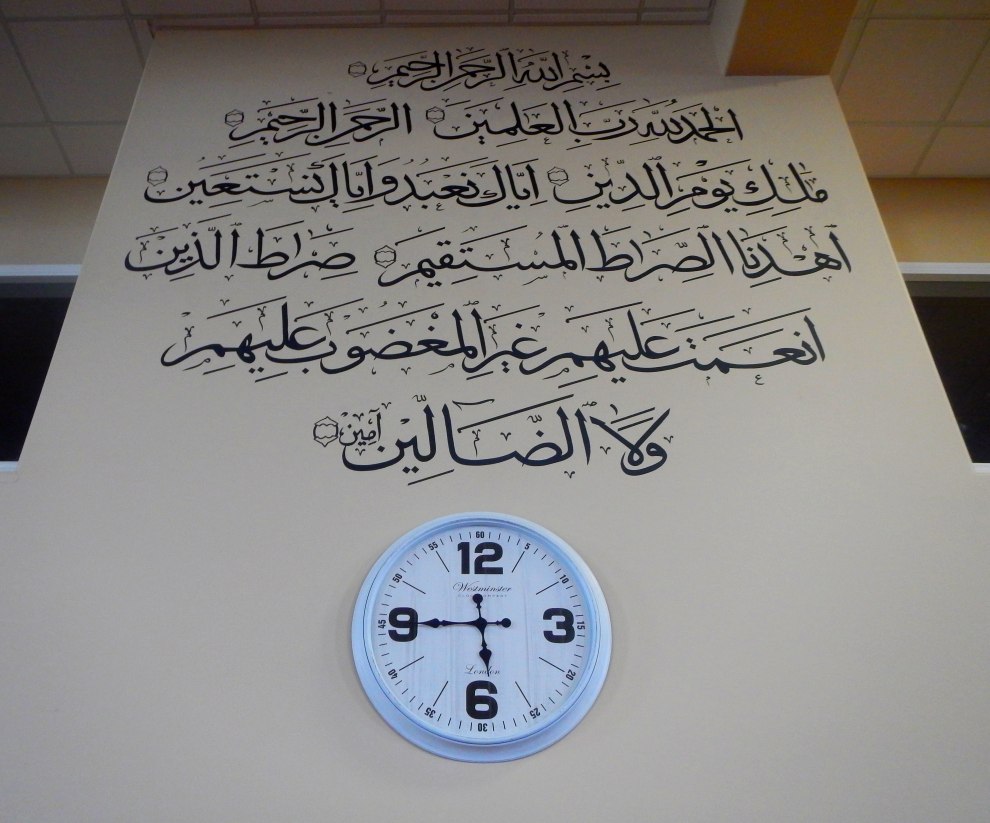 بسم الله الرحمن الرحيم
الحمد لله رب العلمين الرحمن الرحيم
ملك يوم الدين اياك نعبد واياك نستعين
اهدنا الصراط المستقيم صراط الذين
انعمت عليهم غير المغضوب عليهم
ولا الضالين آمين
60
55 12 5
50 10
Westminster
45 9 3 15
40 20
London
35 6 25
30